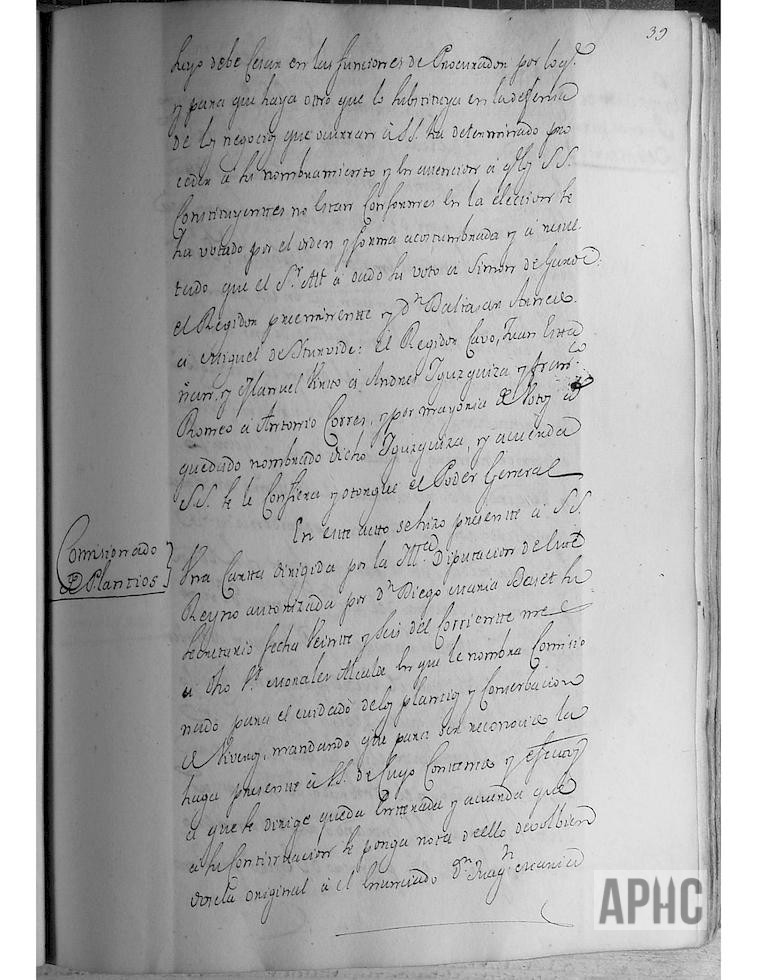 39
debe Cesar en las funciones de Procurador por lo q.e
y para que haya otro que le substituya en la defensa
de los negocios que ocurran a S.S. ha determinado pro
ceder a su nombramiento y en atencion a q.e los S.S.
Constituyentes no estan Conformes en la eleccion se
ha votado por el orden y forma acostumbrada y a resul
tado que el S.r Alc a dado su voto a Simon de
el Regidor preeminente y Dn Baltasar
a Miguel de Yturvide: el Regidor Cavo, Juan
y Manuel a Andres Yguzquiza y Fran.co
Romeo a Antonio Corres, y por mayoria de Votos a
quedado nombrado dicho Yguzquiza, y acuerda
S.S. se le Confiera y otorgue el Poder General
En este auto se hizo presente a S.S.
Comisionado
de Plantios
Una Carta dirigida por la Ill.ma Diputacion de este
Reyno autorizada por Dn Diego Maria Baset su
Secretario fecha Veinte y Seis del Corriente mes
a dho S.r Morales Alcalde en que le nombra Comisio
nado para el cuidado de los plantios y Conserbacion
de mandando que para ser reconocido la
haga presente a S.S. de Cuyo Contenido y
a que se dirige queda Enterada y acuerda que
a su Continuacion se ponga nota de ello devolbien
dosela original a el Enunciado Dn Maria
APHC